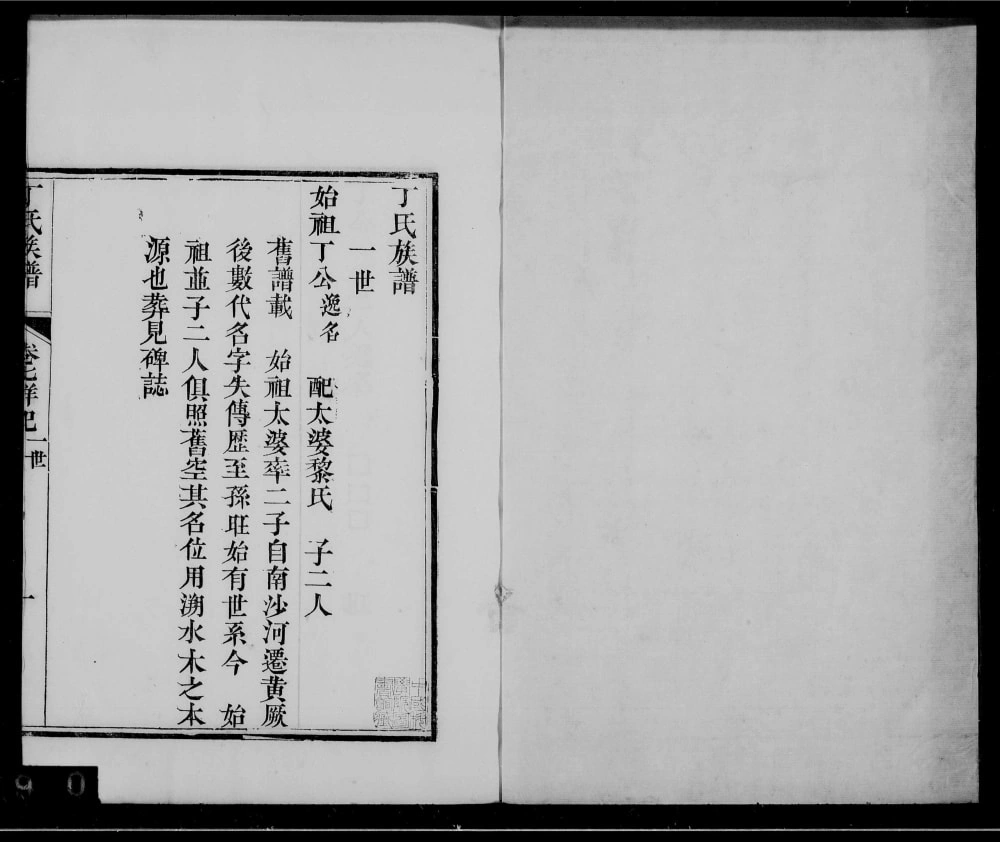 丁氏族譜
一世
始祖丁公逸名 配太婆黎氏 子二人
舊譜載 始祖太婆率二子自南沙河遷黃厥
後數代名字失傳歷至孫旺始有世系今 始
祖並子二人俱照舊空其名位用溯水木之本
源也葬見碑誌
丁氏族譜 卷七詳記 一世 一
9 0